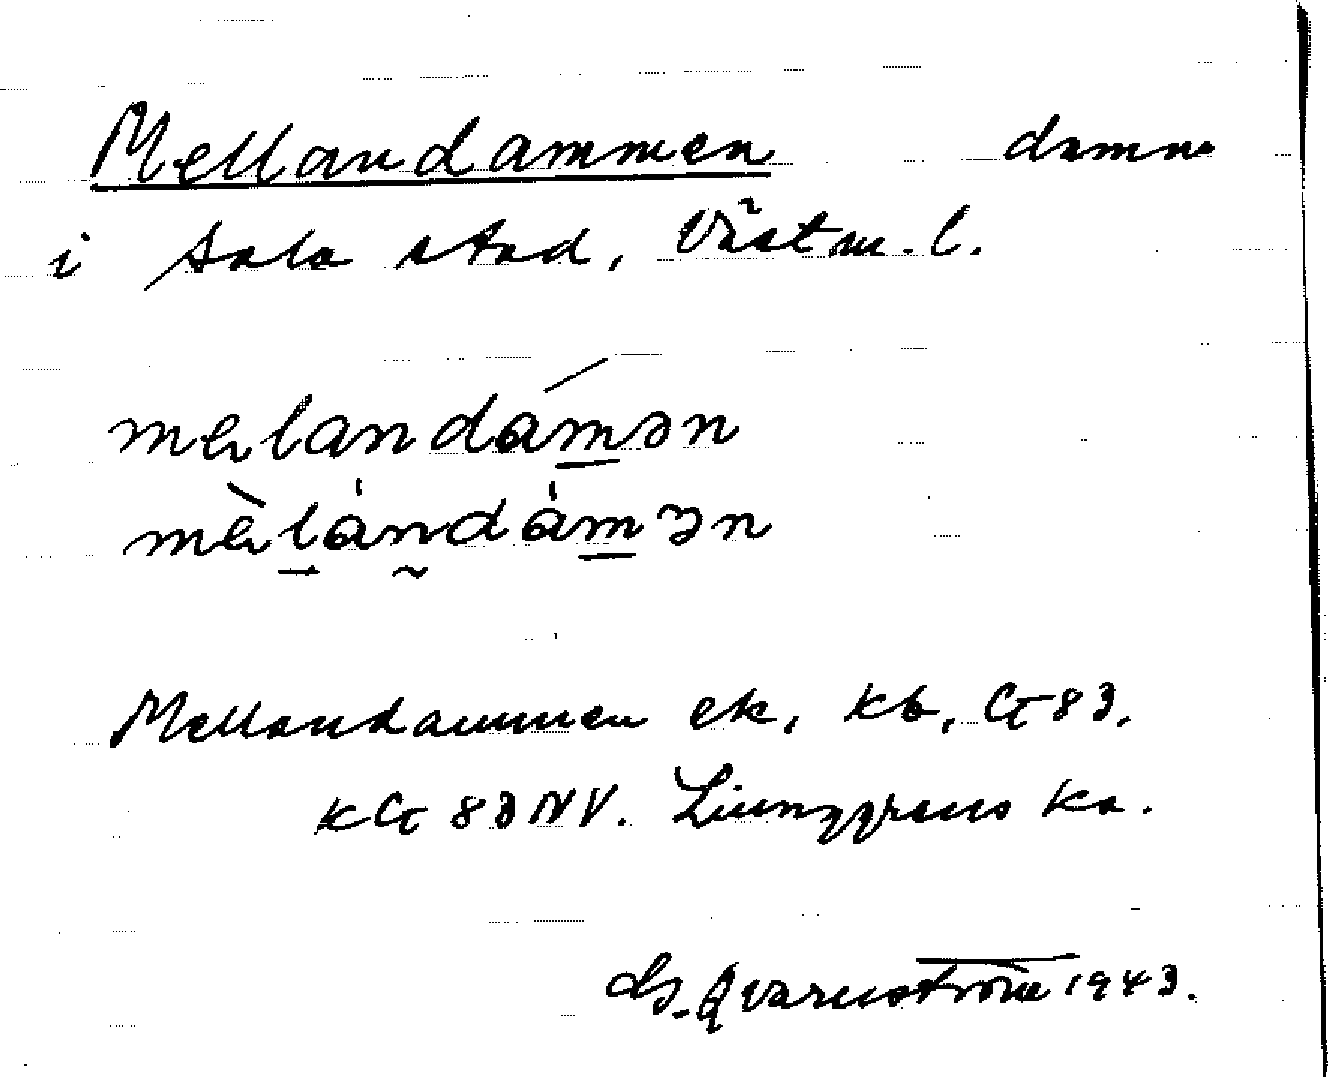 Mellandammen damm
i Sala stad, Västm. l.
mɛlandámən
mɛ̀l̠àn̰dàm̠ən
Mellandammen ek, Kb, G 83.
KG 83 NV. Ljunggrens Ka.
G. Qvarnström 1943.